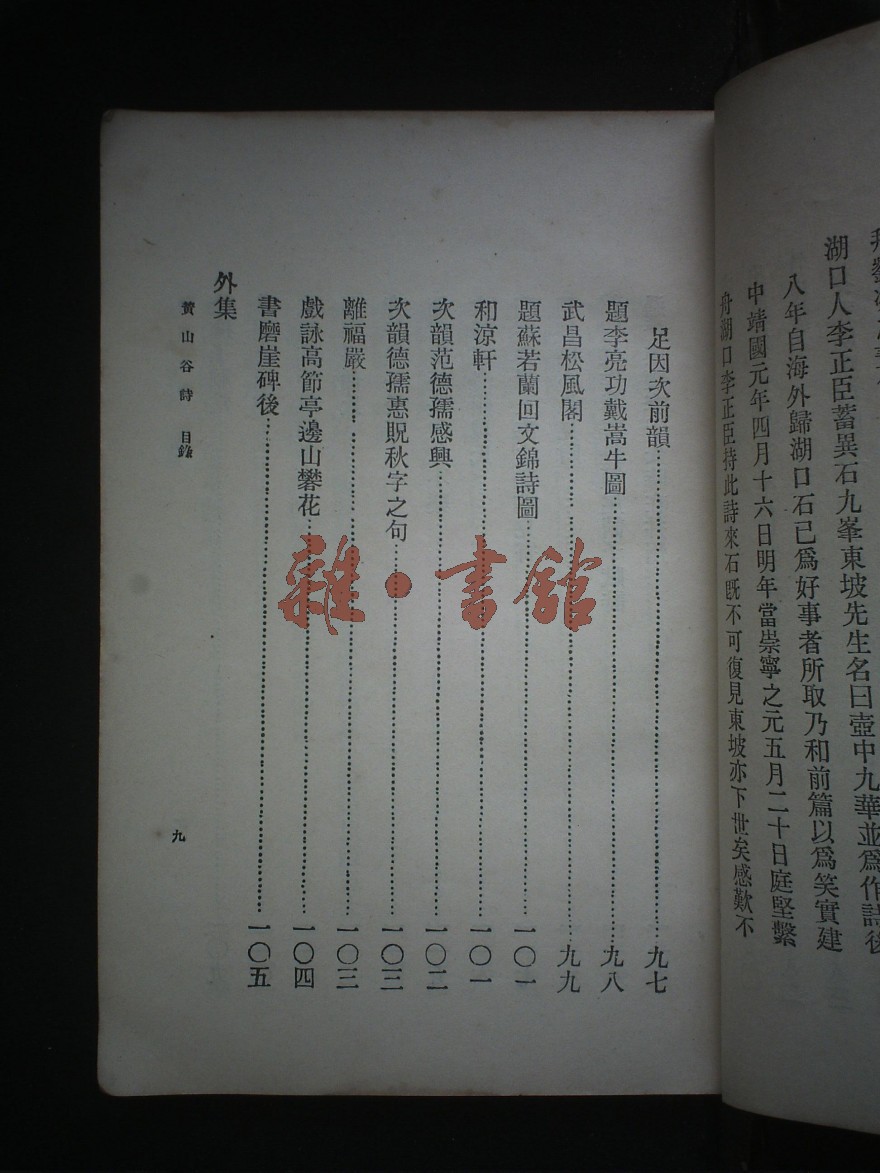 湖口人李正臣蓄異石九峯東坡先生名曰壺中九華並爲作詩後
八年自海外歸湖口石已爲好事者所取乃和前篇以爲笑實建
中靖國元年四月十六日明年當崇寧之元五月二十日庭堅繫
舟湖口李正臣持此詩來石既不可復見東坡亦下世矣感歎不
足因次前韻 九七
題李亮功戴嵩牛圖 九八
武昌松風閣 九九
題蘇若蘭回文錦詩圖 一〇一
和涼軒 一〇一
次韻范德孺感興 一〇二
次韻德孺惠貺秋字之句 一〇三
離福嚴 一〇三
戲詠高節亭邊山礬花 一〇四
書磨崖碑後 一〇五
外集
黃山谷詩 目錄
九
雜·書館